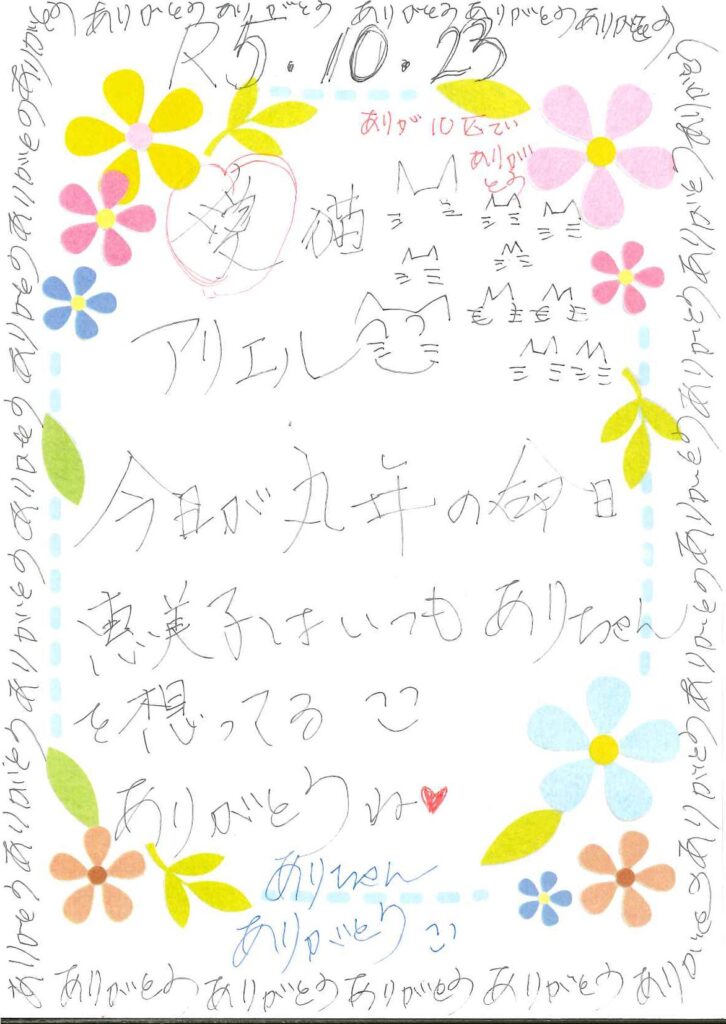 ありがとう ありがとう ありがとう ありがとう ありがとう ありがとう
R5.10.23
ありが10匹で
ありが
とう
愛猫
アリエル
今日が九年の命日
恵美子はいつもありちゃん
を想ってる
ありがとうね♥
ありちゃん
ありがとう
ありがとう ありがとう ありがとう ありがとう ありがとう あり
ありがとう ありがとう ありがとう ありがとう ありがとう ありがとう ありがとう
ありがとう ありがとう ありがとう ありがとう ありがとう ありがとう ありがとう